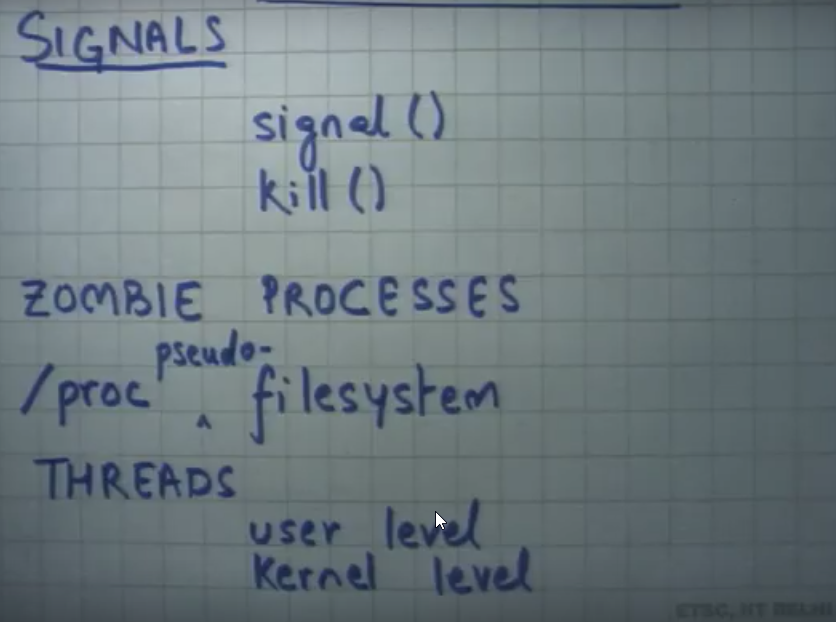 SIGNALS
signal ()
kill ()
ZOMBIE PROCESSES
pseudo-
/proc ^ filesystem
THREADS
user level
Kernel level
ETSC, IIT DELHI